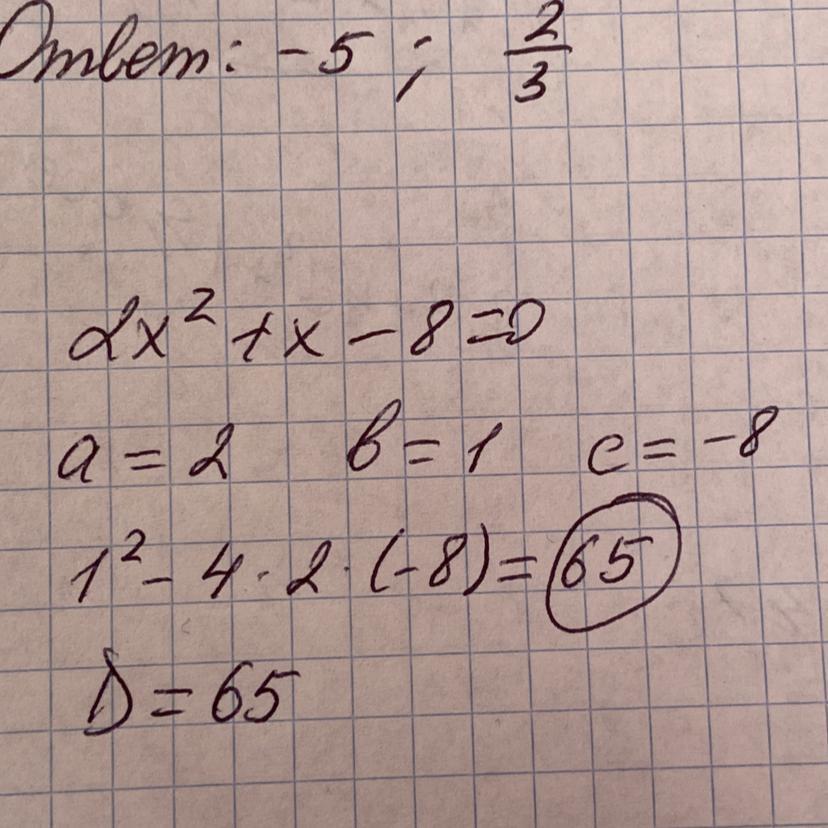 Ответ: -5 ; 2/3
2x² + x - 8 = 0
a = 2 b = 1 c = -8
1² - 4 · 2 · (-8) = 65
D = 65